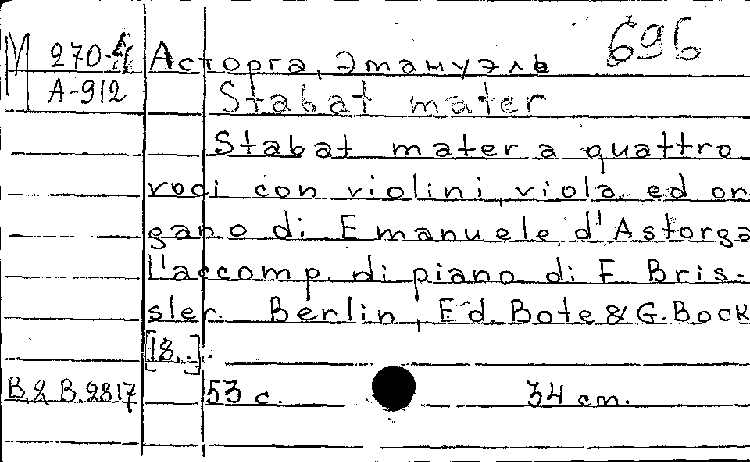 М 270-4 Асторга, Эмануэль 696
А-912 Stabat mater
Stabat mater a quattro
voci con violini, viola ed or
gano di Emanuele d'Astorga
L'accomp. di piano di F. Bris-
sler. Berlin, Ed. Bote & G. Bock
[18..].
B. & B. 9817 53 с. 34 cm.